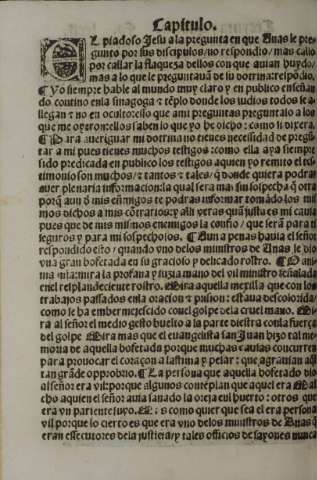 Capitulo.
EL piadoso Jesu a la pregunta en que Anas le pre-
gunto por sus discipulos/no respondio/mas callo
por callar la flaqueza dellos con que auian huydo/
mas a lo que le preguntauã de su dotrina:respõdio,
¶ Yo siempre hable al mundo muy claro/y en publico enseñan
do contino enla sinagoga ⁊ tẽplo donde los iudios todos se a-
llegan ⁊ no en oculto:esso que ami preguntas preguntalo a los
que me oyeron:ellos saben lo que yo he dicho: como si dixera.
¶ Para aueriguar mi dotrina no tienes necessidad de pregũ-
tar a mi pues tienes muchos testigos:como ella aya siempre
sido predicada en publico los testigos aquien yo remito el tes-
timonio son muchos/⁊ tantos ⁊ tales/q̃ donde quiera podras
auer plenaria informacion:la qual sera mas sin sospecha q̃ otra
porq̃ aun d̃ mis enemigos te podras informar tomãdo los mis
mos dichos a mis cõtrarios:y alli veras quã justa es mi causa
pues que de mis mismos enemigos la confio/que serã para ti
seguros y para mi sospechosos. ¶ Aun a penas hauia el señor
respondido esto/quando vno delos ministros de Anas le dio
vna gran bofetada en su gracioso y delicado rostro. ¶ O ani-
ma mia:mira la profana y suzia mano del vil ministro señalada
enel resplandeciente rostro. Mira aquella mexilla que con los
trabajos passados enla oracion ⁊ prision: estaua descolorida/
como se ha embermejescido conel golpe dela cruel mano. Mi-
ra al señor el medio gesto buelto a la parte diestra conla fuerça
del golpe Mira mas que el euangelista san Juan hizo tal me-
moria de aquella bofetada porque muchas causas concurren
para prouocar el coraçon a lastima y pesar: que agrauian aq̃l
tan grãde opprobrio. ¶ La persona que aquella bofetada dio
al señor era vil:porque algunos contẽplan que aquel era Mal
cho aquien el señor auia sanado la oreja en el huerto: otros que
era vn pariente suyo. E como quier que sea el era persona
vil:porque lo cierto es que era vno delos ministros de Anas q̃
eran essecutores dela justicia/y tales officios de sayones nunca